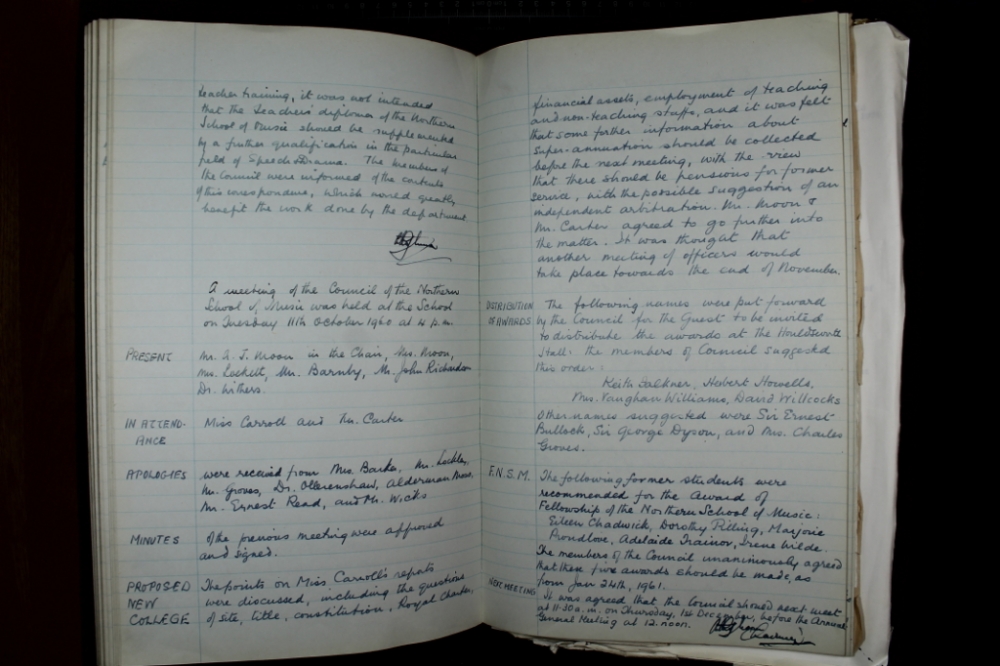 teacher training, it was not intended
that the Teachers' diploma of the Northern
School of Music should be supplemented
by a further qualification in the particular
field of Speech & Drama. The members of
the Council were informed of the contents
of this correspondence, which would greatly
benefit the work done by the department
A meeting of the Council of the Northern
School of Music was held at the School
on Tuesday 11th October 1960 at 4 p.m.
PRESENT Mr. A. J. Moon in the Chair, Mrs. Moon,
Mrs. Lockett, Mr. Barnby, Mr. John Richardson
Dr. Withers.
IN ATTEND-ANCE Miss Carroll and Mr. Carter
APOLOGIES were received from Mrs. Barker, Mr.
Mr. Groves, Dr. Ollerenshaw, Alderman Moss,
Mr. Ernest Read, and Mr. Wicks
MINUTES of the previous meeting were approved
and signed.
PROPOSED The points on Miss Carroll's reports
NEW were discussed, including the questions
COLLEGE of site, title, constitution, Royal Charter,
financial assets, employment of teaching
and non-teaching staffs, and it was felt
that some further information about
super-annuation should be collected
before the next meeting, with the view
that there should be pensions for former
service, with the possible suggestion of an
independent arbitration. Mr. Moon &
Mr. Carter agreed to go further into
the matter. It was thought that
another meeting of officers would
take place towards the end of November.
DISTRIBUTION The following names were put forward
OF AWARDS by the Council for the Guest to be invited
to distribute the awards at the Houldsworth
Hall: the members of Council suggested
this order:
Keith Falkner, Herbert Howells,
Mrs. Vaughan Williams, David Willcocks
Other names suggested were Sir Ernest
Bullock, Sir George Dyson, and Mrs. Charles
Groves.
F.N.S.M. The following former students were
recommended for the award of
Fellowship of the Northern School of Music:
Eileen Chadwick, Dorothy Pilling, Marjorie
Proudlove, Adelaide Trainor, Irene Wilde.
The members of the Council unanimously agreed
that these five awards should be made, as
from Jan 24th, 1961.
NEXT MEETING It was agreed that the Council should next meet
at 11-30 a.m. on Thursday, 1st December, before the Annual
General Meeting at 12.noon.